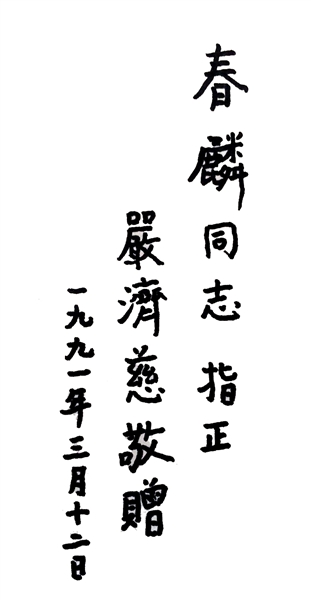 春麟同志 指正
嚴濟慈敬贈
一九九一年三月十二日